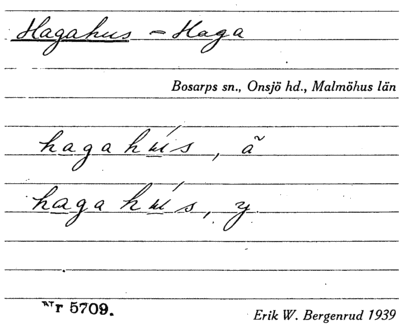 Hagahus – Haga
Bosarps sn., Onsjö hd., Malmöhus län
hagahús, ã
hagahús, y.
Nr 5709.
Erik W. Bergenrud 1939